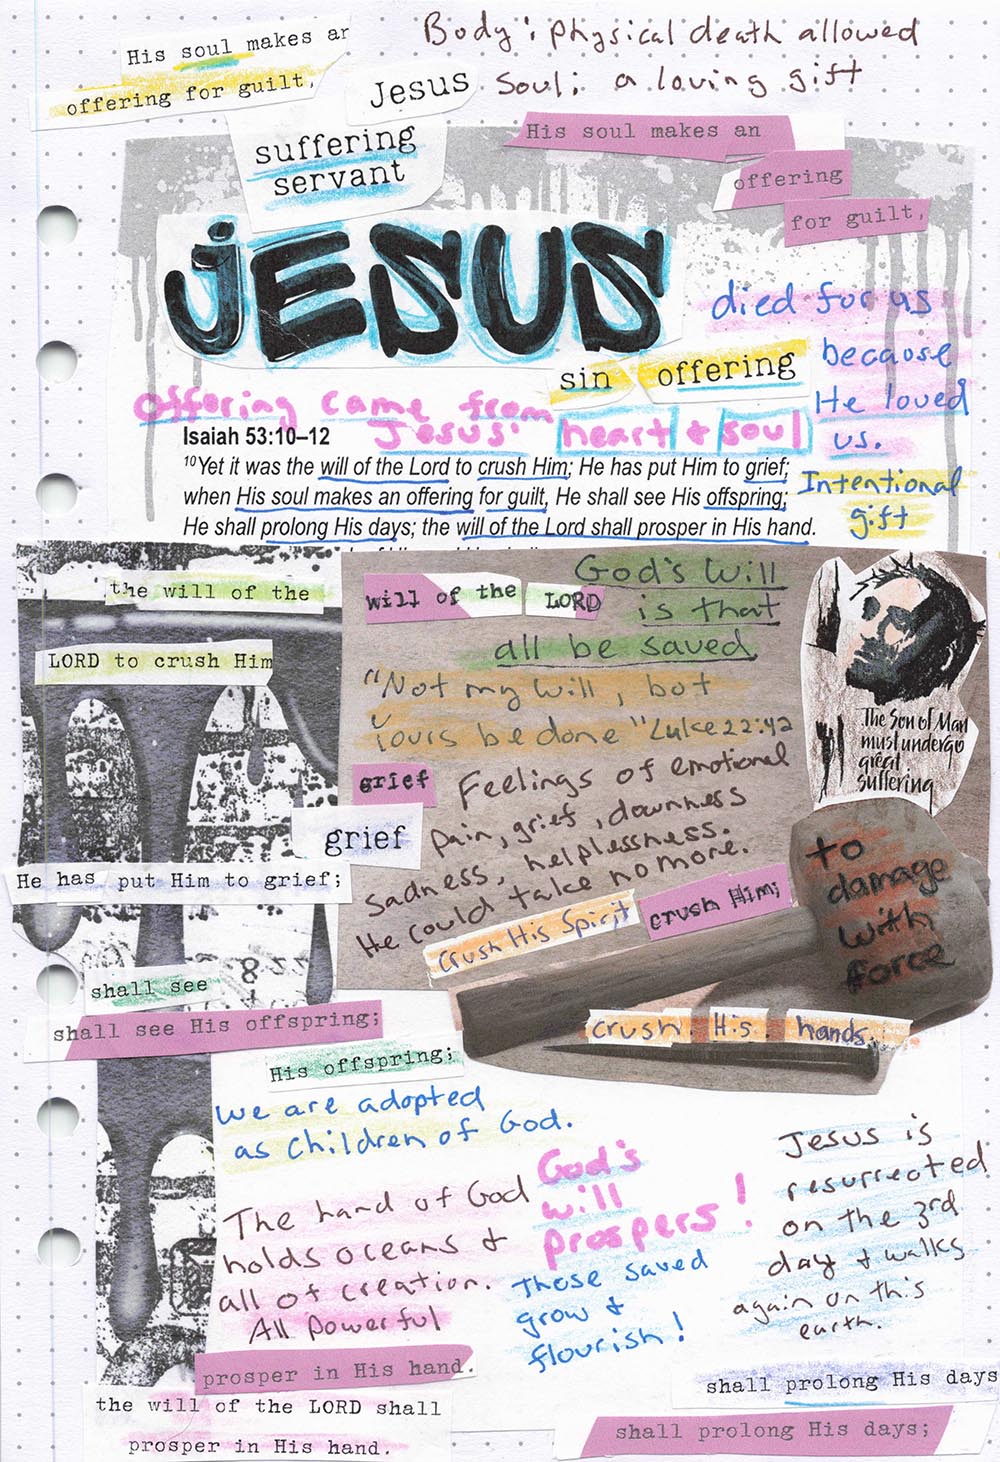 Body: physical death allowed
Soul: a loving gift
His soul makes an
offering for guilt,
Jesus
suffering
servant
His soul makes an
offering
for guilt,
JESUS
died for us
because
He loved
us.
Intentional
gift
sin offering
Offering came from
Jesus' heart & soul
Isaiah 53:10–12
10Yet it was the will of the Lord to crush Him; He has put Him to grief;
when His soul makes an offering for guilt, He shall see His offspring;
He shall prolong His days; the will of the Lord shall prosper in His hand.
the will of the
LORD to crush Him
will of the LORD
God's will
is that
all be saved
"Not my will, but
Yours be done" Luke 22:42
The Son of Man
must undergo
great
suffering
grief
Feelings of emotional
pain, grief, downness
sadness, helplessness.
He could take no more.
grief
He has put Him to grief;
crush His Spirit
crush Him;
to
damage
with
force
crush His hands.
shall see
shall see His offspring;
His offspring;
We are adopted
as Children of God.
The hand of God
holds oceans &
all of creation.
All Powerful
God's
will
prospers!
Those saved
grow &
flourish!
Jesus is
resurrected
on the 3rd
day & walks
again on this
earth.
prosper in His hand.
the will of the LORD shall
prosper in His hand.
shall prolong His days
shall prolong His days;